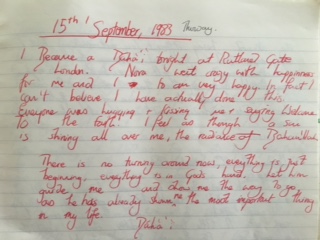 15th September, 1983 Thursday.
I Became a Bahá'í tonight at Rutland Gate
London. Nora went crazy with happiness
for me and I to am very happy. In fact I
can't believe I have actually done this.
Everyone was hugging & kissing me & saying Welcome
to the faith. I feel as though a sun
is shining all over me, the radiance of Bahaullah.
There is no turning around now, everything is just
beginning, everything is in Gods hand. Let him
guide me and show me the way to go,
has he has already shown me the most important thing
in my life.
Bahá'í